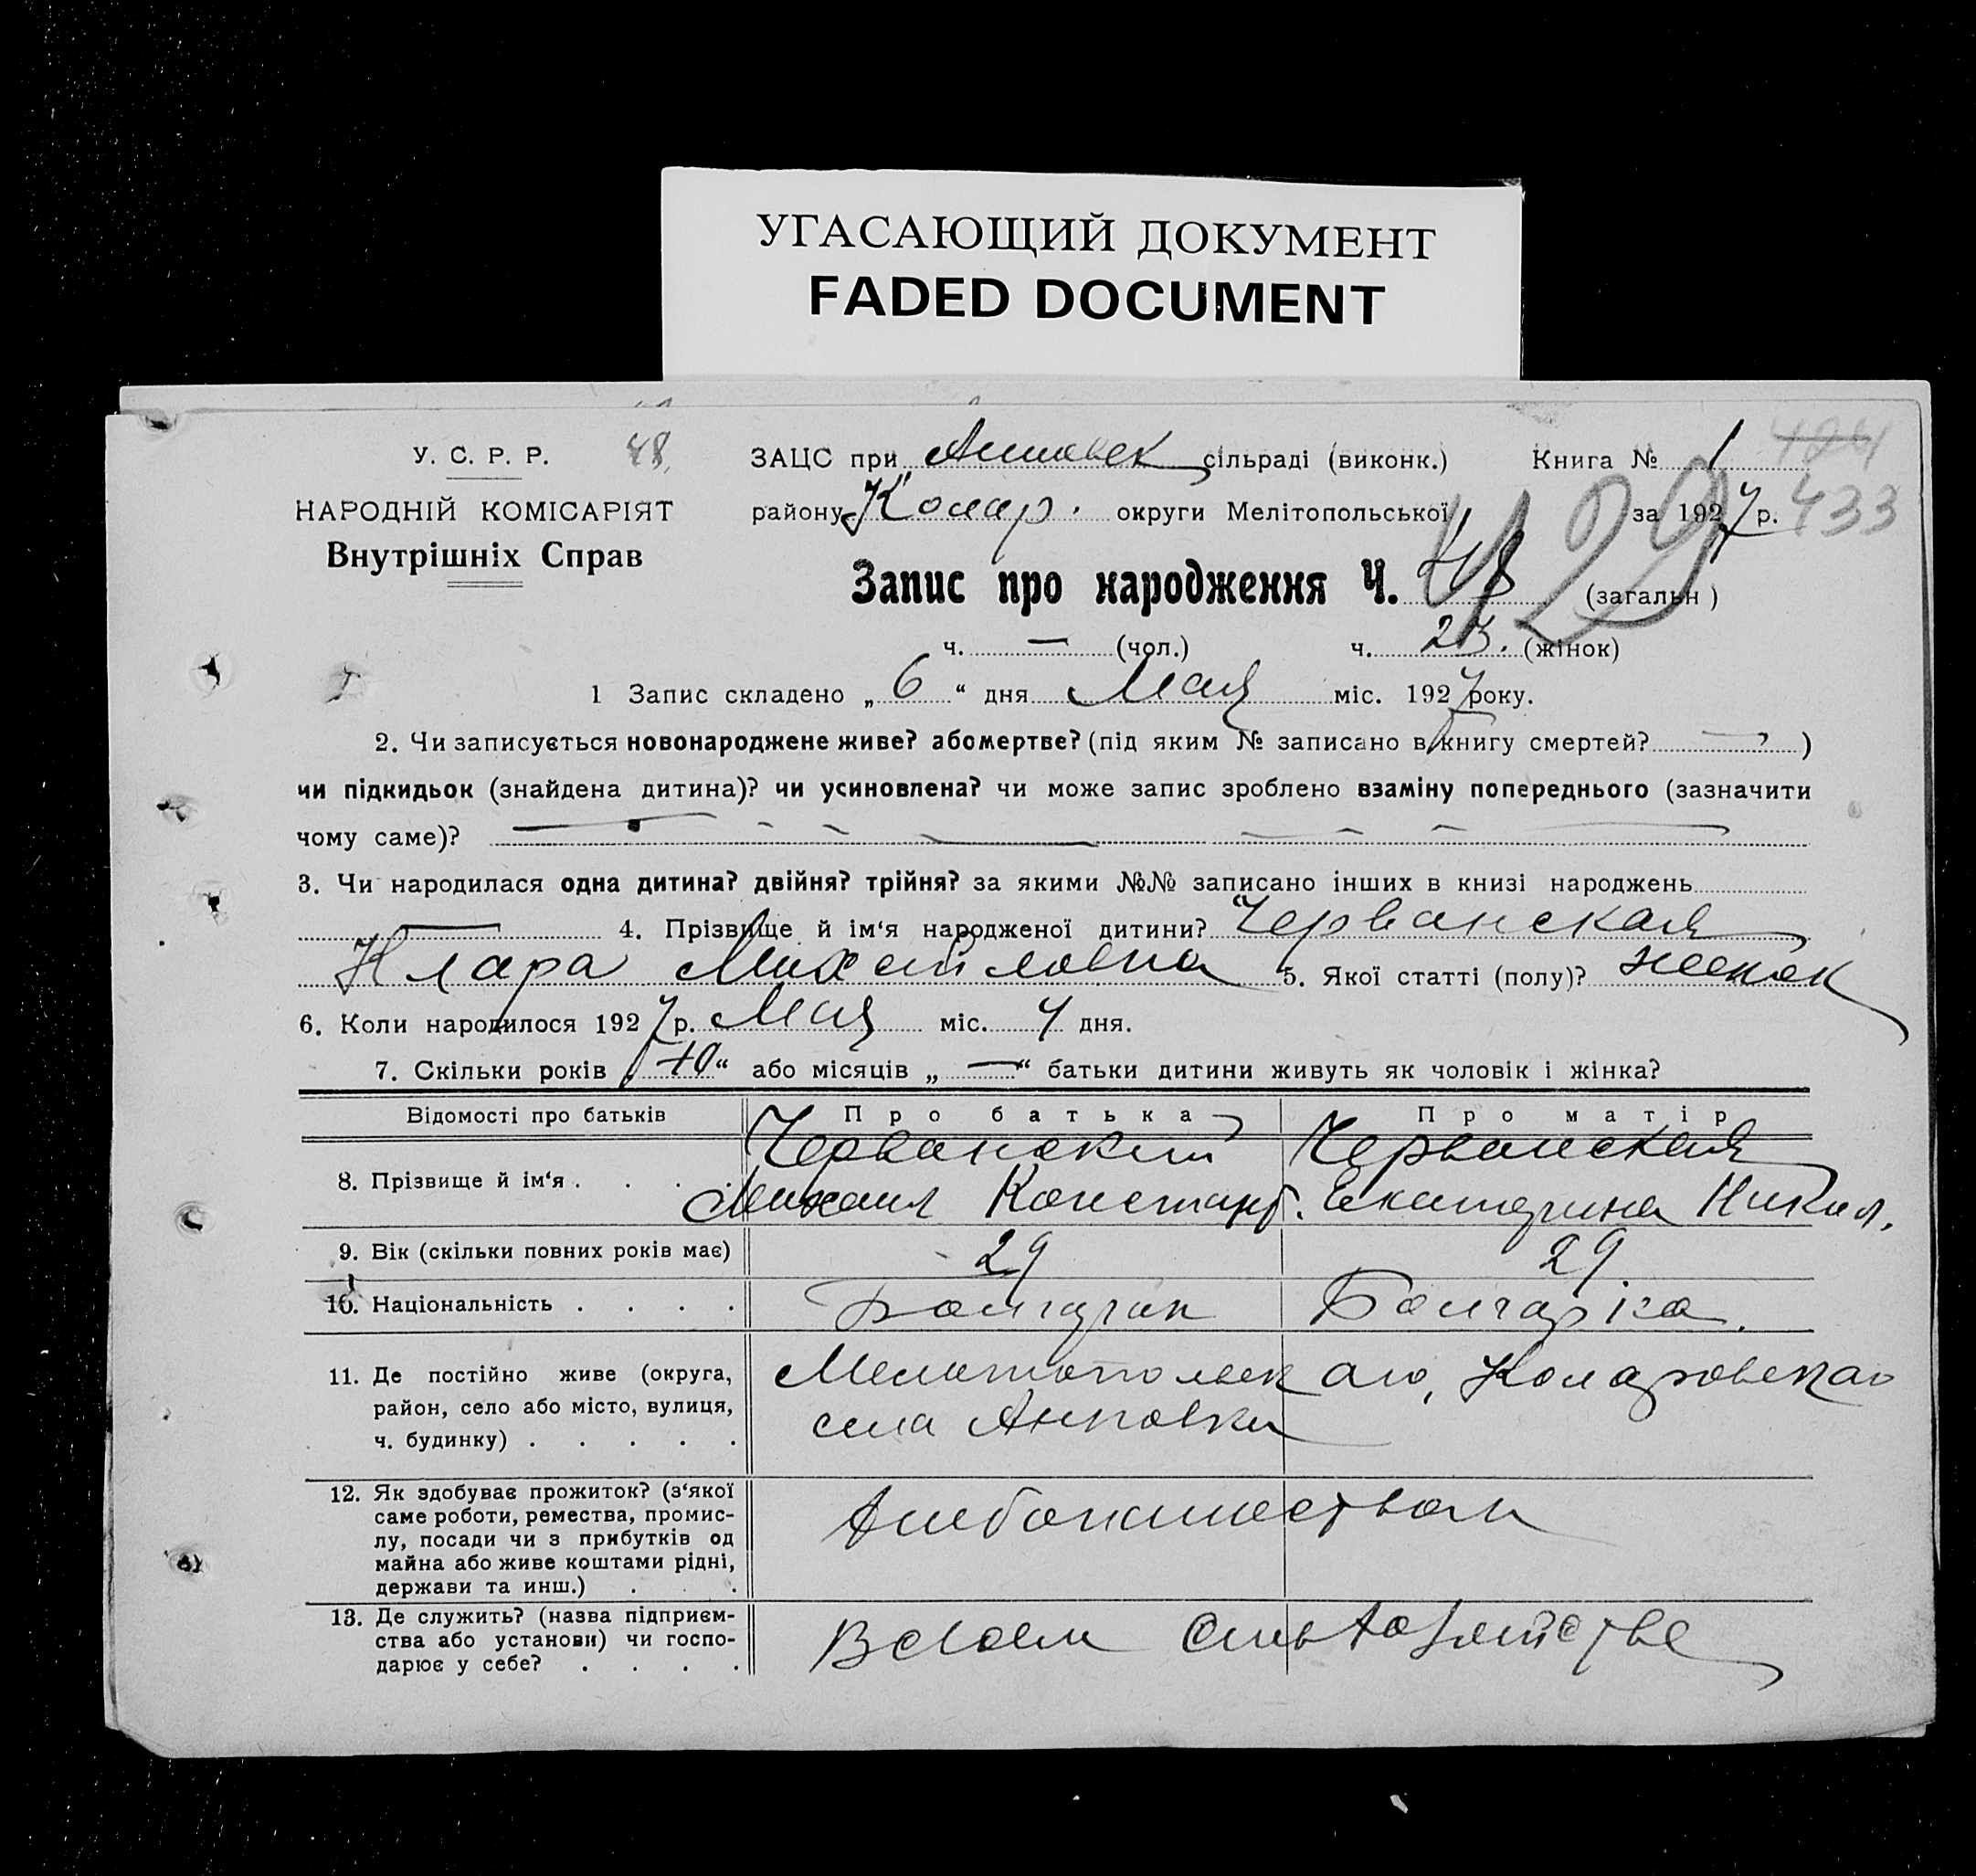 УГАСАЮЩИЙ ДОКУМЕНТ
FADED DOCUMENT
У. С. Р. Р. 48
НАРОДНІЙ КОМІСАРІЯТ
Внутрішніх Справ
ЗАЦС при Анновск сільраді (виконк.) Книга № 1
району Колар. округи Мелітопольської за 1927 р. 433
429
Запис про народження Ч. 48 (загальн)
ч. — (чол.) ч. 23. (жінок)
1 Запис складено „ 6 “ дня Мая міс. 1927 року.
2. Чи записується новонароджене живе? або мертве? (під яким № записано в книгу смертей? — )
чи підкидьок (знайдена дитина)? чи усиновлена? чи може запис зроблено взаміну попереднього (зазначити
чому саме)? —
3. Чи народилася одна дитина? двійня? трійня? за якими №№ записано інших в книзі народжень
— 4. Прізвище й ім‘я народженої дитини? Черванская
Клара Михайловна 5. Якої статті (полу)? женск
6. Коли народилося 1927 р. Мая міс. 4 дня.
7. Скільки років „ 10 “ або місяців „ — “ батьки дитини живуть як чоловік і жінка?
Відомості про батьків Про батька Про матір
8. Прізвище й ім‘я . . . . Черванский Михаил Констант. Черванская Екатерина Никол.
9. Вік (скільки повних років має) 29 29
10. Національність . . . . Болгарин Болгарка.
11. Де постійно живе (округа, Мелитопольск аго, Коларовскаго
район, село або місто, вулиця, села Анновки
ч. будинку) . . . . .
12. Як здобуває прожиток? (з‘якої
саме роботи, ремества, промис-
лу, посади чи з прибутків од Хлебопашеством
майна або живе коштами рідні,
держави та инш.) . . .
13. Де служить? (назва підприєм-
ства або установи) чи госпо- В своем сельхозяйстве
дарює у себе? . . . .